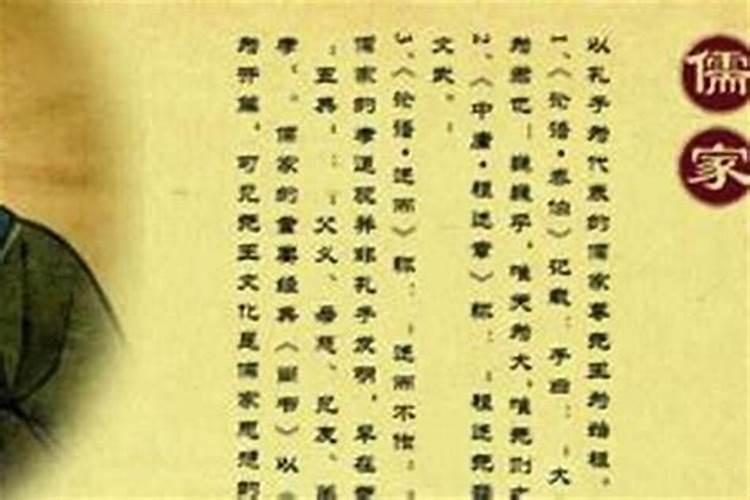 儒家
以孔子为代表的儒家尊尧王为始祖。
1、《论语·泰伯》记载：子曰：“大
为君也！巍巍乎，唯天为大，唯尧则
2、《中庸·祖述章》称：“祖述尧
文武。”
3、《论语·述而》称：“述而不作，
儒家的孝道观并非孔子发明，早在
“五典”：“父义、母慈、兄友、弟
孝”。儒家的重要经典《尚书》以
为开篇，可见尧王文化是儒家思想的